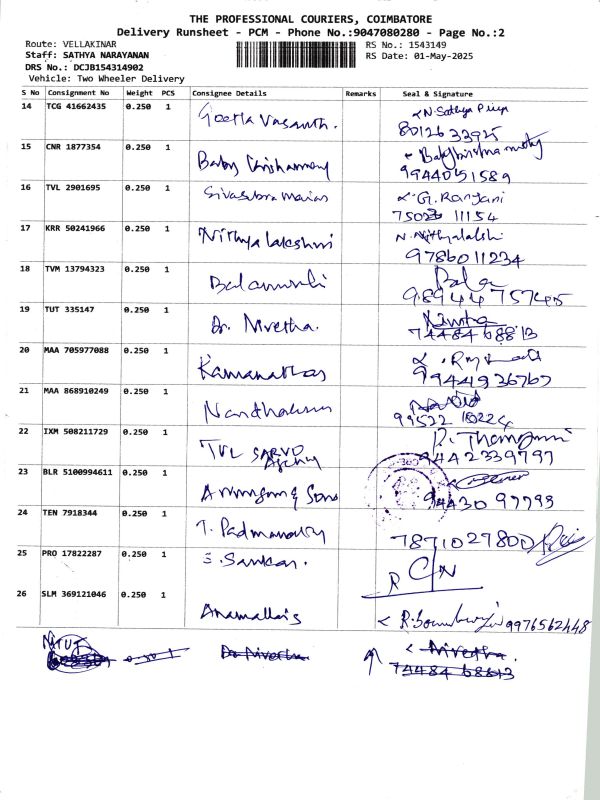 THE PROFESSIONAL COURIERS, COIMBATORE
Delivery Runsheet - PCM - Phone No.:9047080280 - Page No.:2
Route: VELLAKINAR RS No.: 1543149
Staff: SATHYA NARAYANAN RS Date: 01-May-2025
DRS No.: DCJB154314902
Vehicle: Two Wheeler Delivery
S No Consignment No Weight PCS Consignee Details Remarks Seal & Signature
14 TCG 41662435 0.250 1 Geetha Vasanth. N. Sathya Priya
8012633925
15 CNR 1877354 0.250 1 Baby Krishnamurthy
9944051589
16 TVL 2901695 0.250 1 Sivasubramanian G. Ranjani
75026 11154
17 KRR 50241966 0.250 1 Nithyalakshmi N. Nithyalakshmi
9786011234
18 TVM 13794323 0.250 1 Balamurali Bala
98944 75745
19 TUT 335147 0.250 1 Dr. Nivetha. Nivetha
74484 68813
20 MAA 705977088 0.250 1 Kamanathas
9944936767
21 MAA 868910249 0.250 1 Nandhakumar
99522 10224
22 IXM 508211729 0.250 1 TVL SARVO Agency P. Thangamani
9442339797
23 BLR 5100994611 0.250 1 Arumugam & Sons
94430 97793
24 TEN 7918344 0.250 1 T. Padmanaban
7871027800
25 PRO 17822287 0.250 1 S. Sankar.
R C/N
26 SLM 369121046 0.250 1 Anamallais 9976562448
NITUT 0.250 1 Dr Nivetha Nivetha.
74484 68813